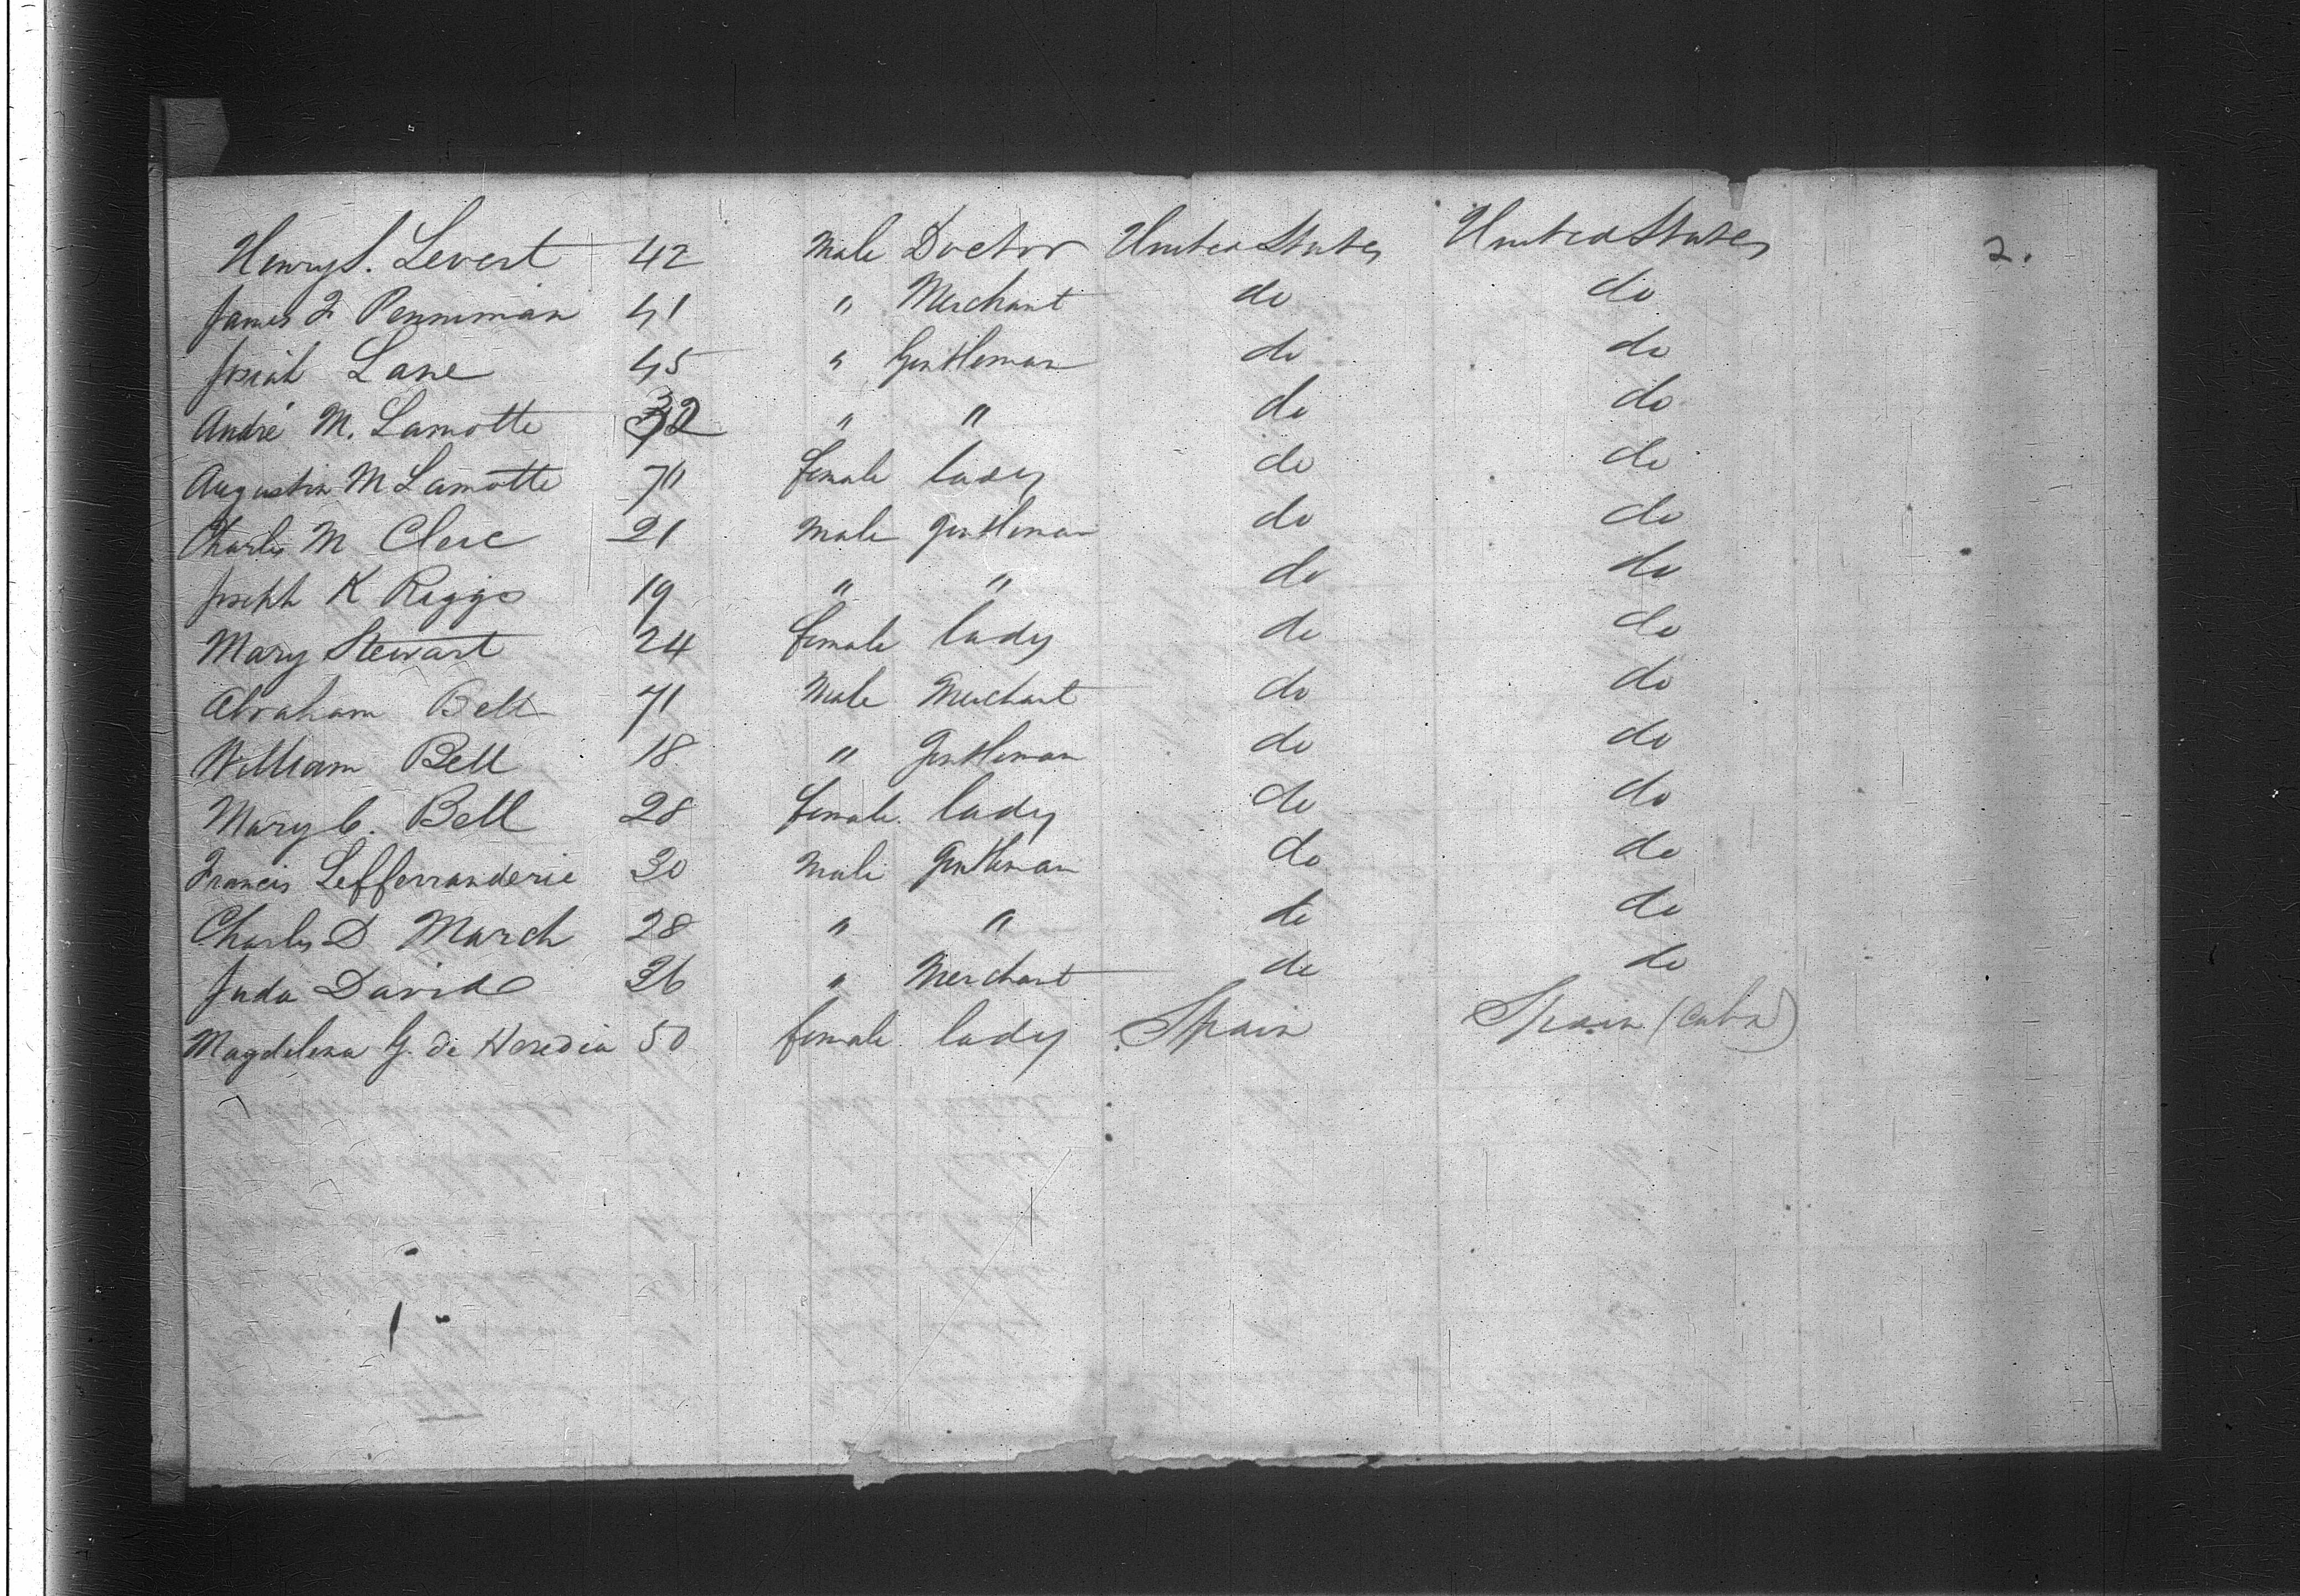 Henry S. Levert 42 Male Doctor United States United States 2.
James F Penniman 41 " Merchant do do
Josiah Lane 45 " Gentleman do do
André M. Lamotte 32 " " do do
Augustin M Lamotte 70 female lady do do
Charles M Clerc 21 Male Gentleman do do
Joseph K Riggs 19 " " do do
Mary Stewart 24 female lady do do
Abraham Bell 71 Male Merchant do do
William Bell 18 " Gentleman do do
Mary C. Bell 28 female lady do do
Francis Lefferranderie 30 Male Gentleman do do
Charles D March 28 " " do do
Juda David 36 " Merchant do do
Magdelena G. de Heredia 50 female lady Spain Spain (Cuba)